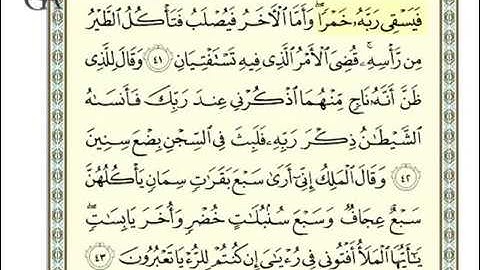 فَيَسْقِى رَبَّهُۥ خَمْرًا ۖ وَأَمَّا ٱلْـَٔاخَرُ فَيُصْلَبُ فَتَأْكُلُ ٱلطَّيْرُ
مِن رَّأْسِهِۦ ۚ قُضِىَ ٱلْأَمْرُ ٱلَّذِى فِيهِ تَسْتَفْتِيَانِ ٤١ وَقَالَ لِلَّذِى
ظَنَّ أَنَّهُۥ نَاجٍ مِّنْهُمَا ٱذْكُرْنِى عِندَ رَبِّكَ فَأَنسَىٰهُ
ٱلشَّيْطَـٰنُ ذِكْرَ رَبِّهِۦ فَلَبِثَ فِى ٱلسِّجْنِ بِضْعَ سِنِينَ
٤٢ وَقَالَ ٱلْمَلِكُ إِنِّىٓ أَرَىٰ سَبْعَ بَقَرَٰتٍ سِمَانٍ يَأْكُلُهُنَّ
سَبْعٌ عِجَافٌ وَسَبْعَ سُنۢبُلَـٰتٍ خُضْرٍ وَأُخَرَ يَابِسَـٰتٍ ۖ
يَـٰٓأَيُّهَا ٱلْمَلَأُ أَفْتُونِى فِى رُءْيَـٰىَ إِن كُنتُمْ لِلرُّءْيَا تَعْبُرُونَ ٤٣